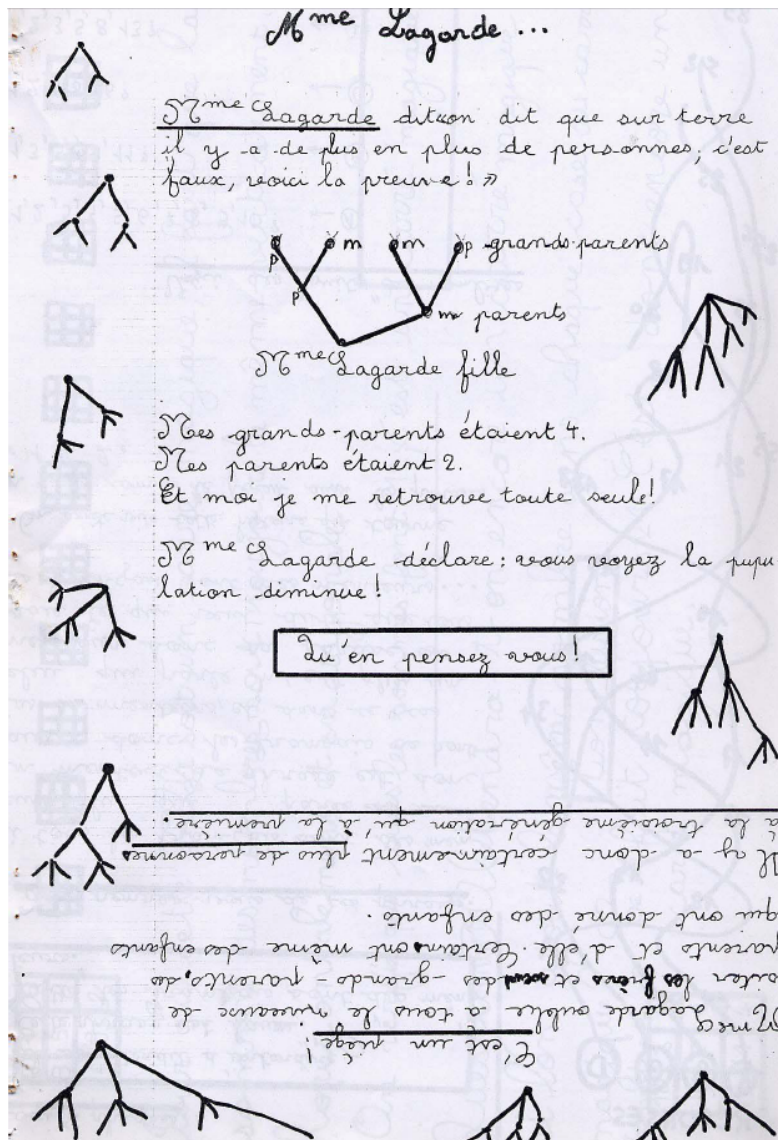 Mme Lagarde...
Mme Lagarde dit « on dit que sur terre
il y a de plus en plus de personnes, c'est
faux, voici la preuve! »
m m p grands-parents
p
p m parents
Mme Lagarde fille
Mes grands-parents étaient 4.
Mes parents étaient 2.
Et moi je me retrouve toute seule!
Mme Lagarde déclare: vous voyez la popu
lation diminue!
Qu'en pensez vous!
C'est un piège!
Mme Lagarde oublie a tous le niveause de
citer les frères et soeurs des grands-parents, des
parents et d'elle. Certains ont même des enfants
qui ont donné des enfants.
Il y a donc certainement plus de personnes
à la troisième génération qu'à la première.